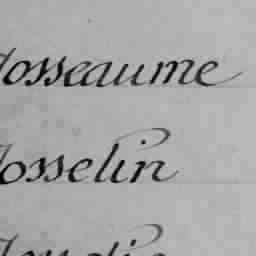 Josseaume
Josselin